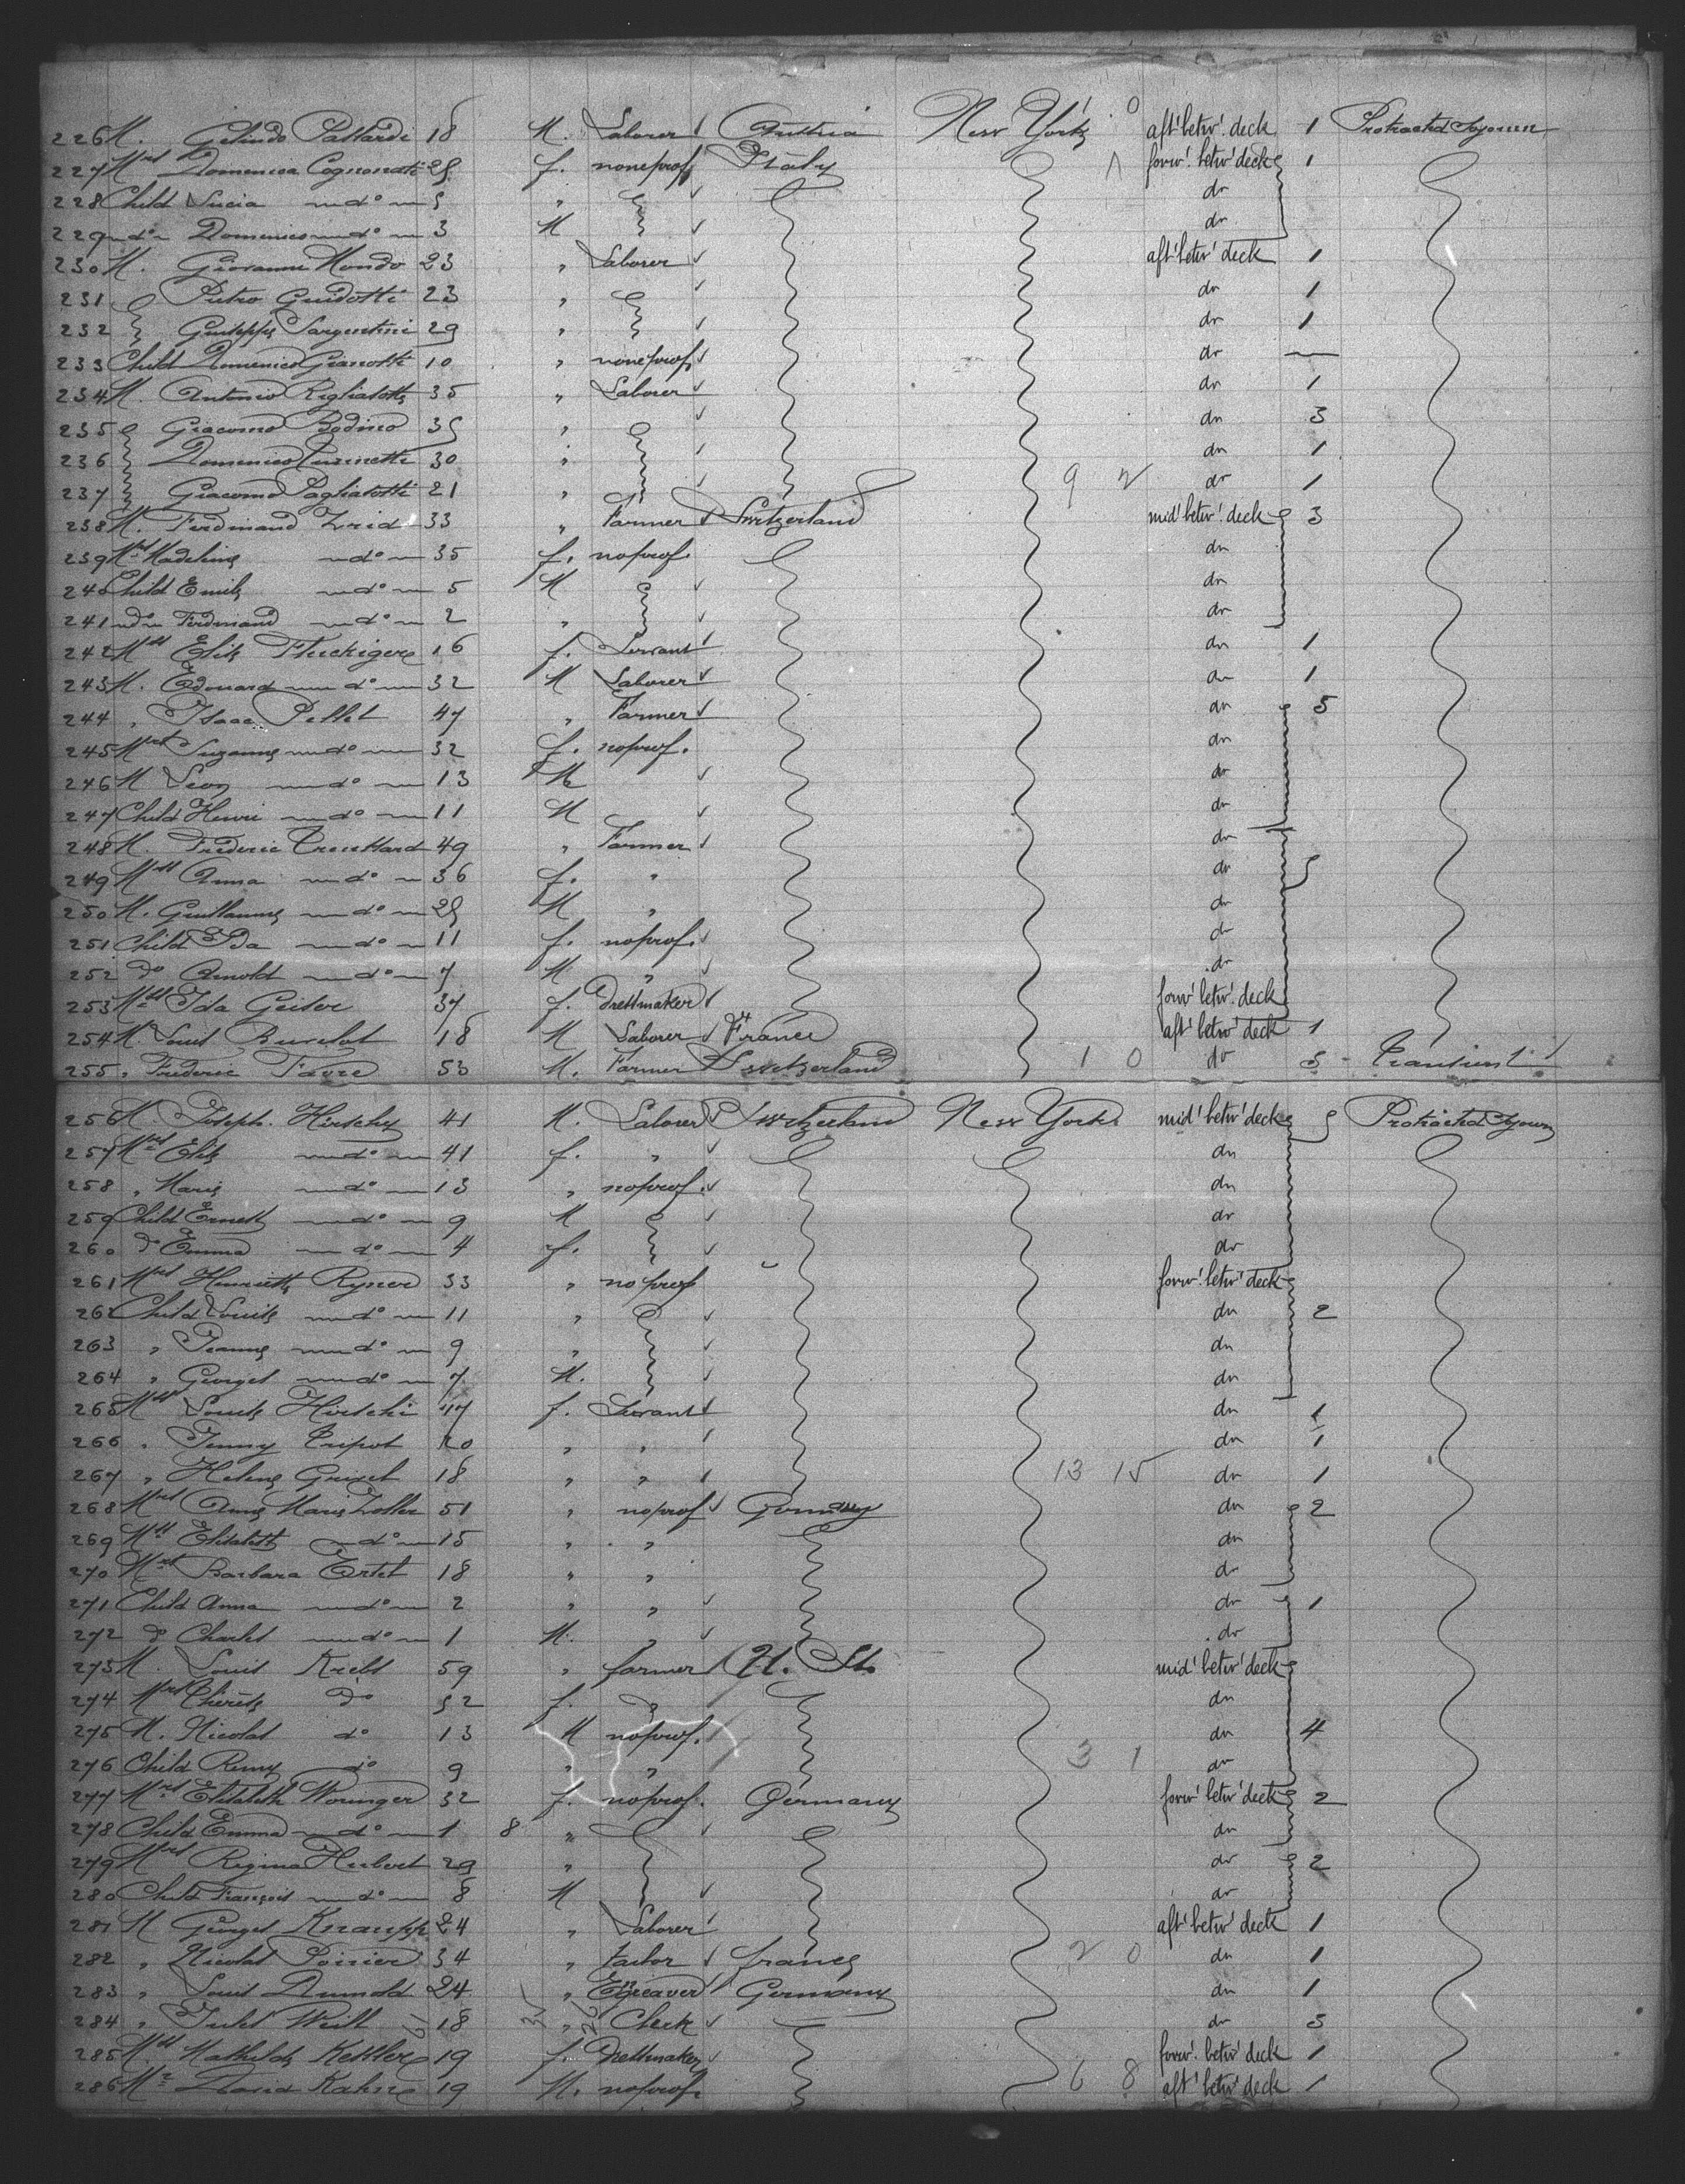 226 M. Gelindo Pallarde 18 M. Laborer Austria New York 0 aft' betw' deck 1 Protracted Sojourn
227 Mrs Domenica Cognonati 25 f. none prof Italy forw' betw' deck 1
228 Child Lucia do 5 " do
229 do Domenico do 3 M do
230 M. Giovanni Mondo 23 " Laborer aft' betw' deck 1
231 Pietro Guidotti 23 " do 1
232 Giuseppe Sargentini 29 " do 1
233 Child Domenico Gianotti 10 " none prof do —
234 M. Antonio Rigliatotti 35 " Laborer do 1
235 Giacomo Bodino 35 " do 3
236 Domenico 30 " do 1
237 Giacomo Pagliatotti 21 " 9 2 do 1
238 M. Ferdinand Zrid 33 " Farmer Switzerland mid' betw' deck 3
239 Mrs Madeline do 35 f. no prof. do
240 Child Emile do 5 M do
241 do Ferdinand do 2 " do
242 Mlle Elise Fluckigere 16 f. Servant do 1
243 M. Edouard do 32 M Laborer do 1
244 " Isaac Pellet 47 " Farmer do 5
245 Mrs Suzanne do 32 f. no prof. do
246 M Leon do 13 M do
247 Child Henri do 11 M do
248 M. Frederic Treuthard 49 " Farmer do
249 Mlle Anna do 36 f. " do 5
250 M. Guillaume do 25 M " do
251 Child Ida do 11 f. no prof. do
252 do Arnold do 7 M " do
253 Mlle Ida Geiser 37 f. Dressmaker forw' betw' deck
254 M. Louis Burelot 18 M Laborer France aft' betw' deck 1
255 " Frederic Favre 53 M. Farmer Switzerland 1 0 do 3 Transient
256 M. Joseph Hirschy 41 M. Laborer Switzerland New York mid' betw' deck 5 Protracted Sojourn
257 Mrs Elise do 41 f. " do
258 " Marie do 13 " no prof. do
259 Child Ernest do 9 M do
260 do Emma do 4 f. do
261 Mrs Henriette Ryser 33 " no prof forw' betw' deck
262 Child Louise do 11 " do 2
263 " Jeanne do 9 " do
264 " Georges do 7 M. do
265 Mlle Louise Hirschi 47 f. Servant do 1
266 " Jenny Tripot 20 " " do 1
267 " Helene Grisel 18 " " 13 15 do 1
268 Mrs Anne Marie Zoller 51 " no prof Germany do 2
269 Mlle Elisabeth do 15 " " do
270 Mrs Barbara Ertel 18 " " do
271 Child Anna do 2 " " do 1
272 do Charles do 1 M. " do
273 M. Louis Krebs 59 " farmer U. St. mid' betw' deck
274 Mrs Thérèse do 52 f. " do
275 M. Nicolas do 13 M no prof. do 4
276 Child Remy do 9 " " 3 1 do
277 Mrs Elisabeth Woringer 32 f. no prof. Germany forw' betw' deck 2
278 Child Emma do 1 8 " do
279 Mrs Regina Hubert 29 " do 2
280 Child François do 8 M do
281 M Georges Knaupp 24 " Laborer aft' betw' deck 1
282 " Nicolas Poirier 34 " tailor france 2 0 do 1
283 " Louis Dumold 24 " Engraver Germany do 1
284 " Jules Weill 18 " Clerk do 3
285 Mlle Mathilde Kettlere 19 f. Dressmaker forw' betw' deck 1
286 Mr David Kahn 19 M. no prof. 6 8 aft' betw' deck 1